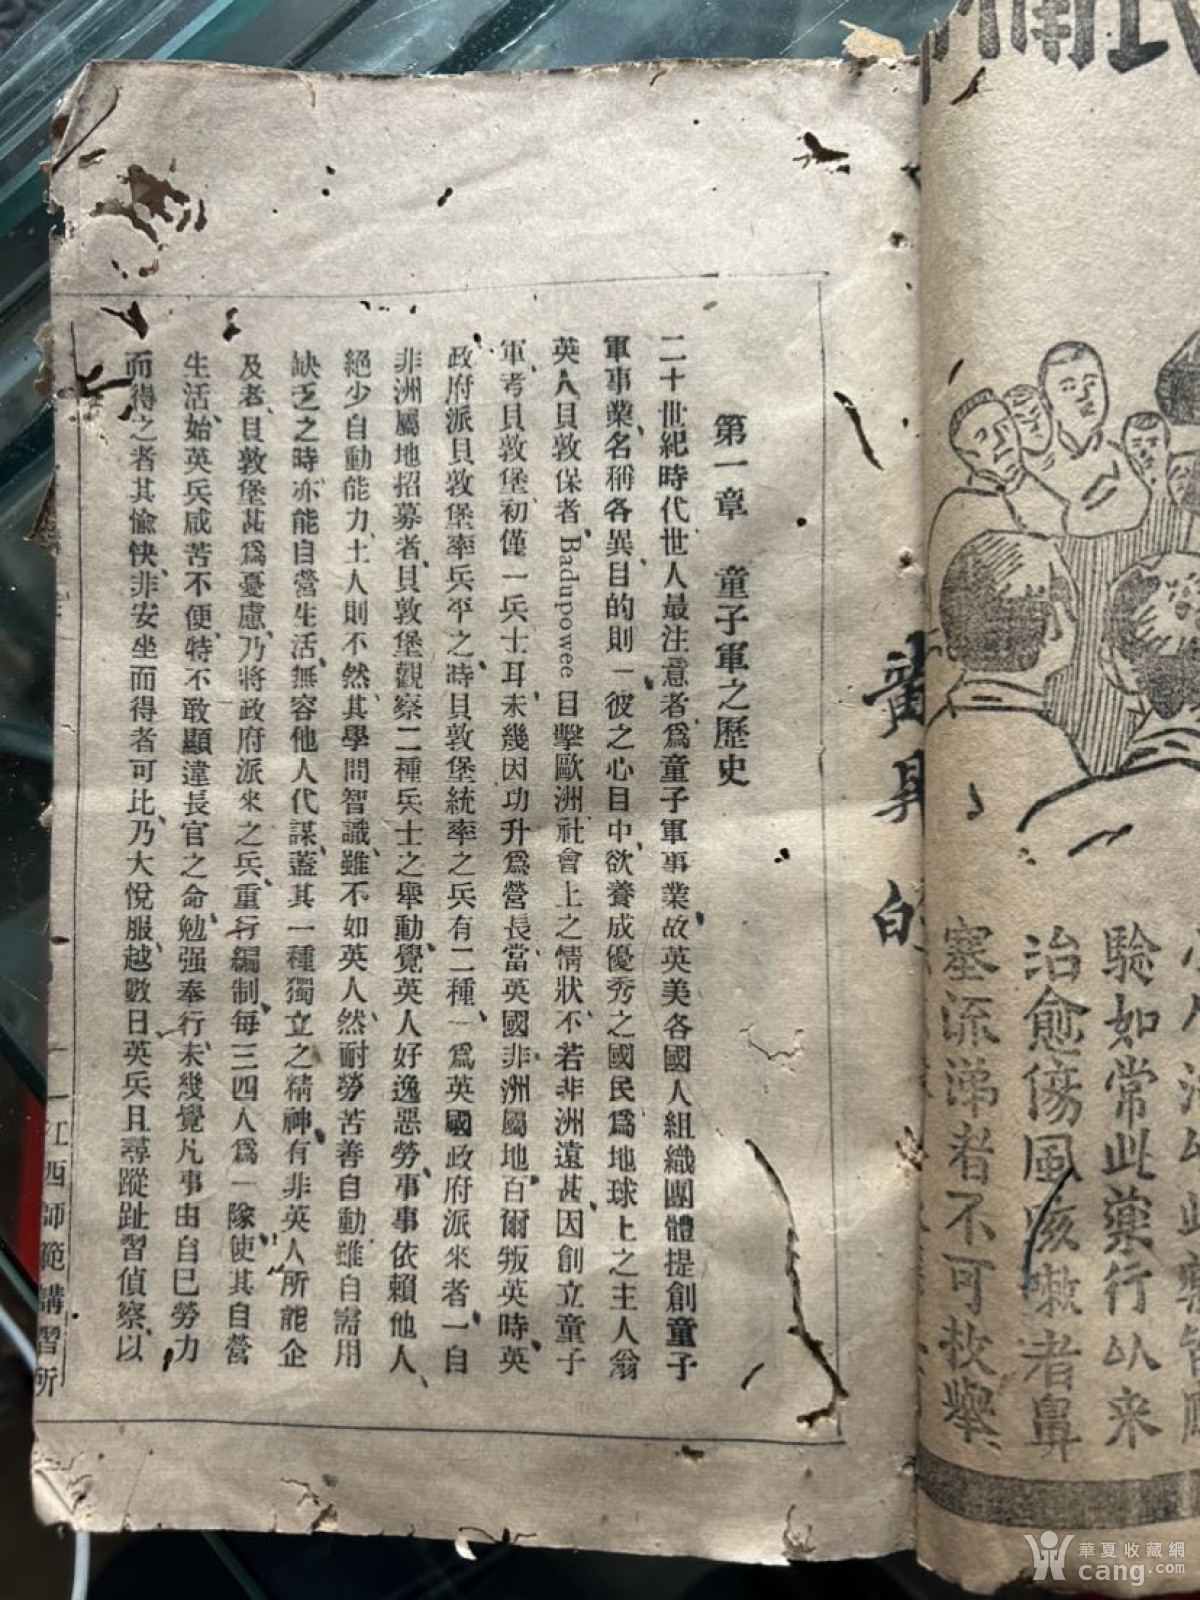 第一章　童子軍之歷史
二十世紀時代世人最注意者、爲童子軍事業、故英美各國人組織團體提創童子
軍事業、名稱各異、目的則一、彼之心目中、欲養成優秀之國民、爲地球上之主人翁
英人貝敦保者、Badupowee 目擊歐洲社會上之情狀、不若非洲遠甚、因創立童子
軍、考貝敦堡初僅一兵士耳、未幾因功升爲營長、當英國非洲屬地百爾叛英時、英
政府派貝敦堡率兵平之、時貝敦堡統率之兵有二種、一爲英國政府派來者、一自
非洲屬地招募者、貝敦堡觀察二種兵士之舉動、覺英人好逸惡勞、事事依賴他人、
絕少自動能力、土人則不然、其學問智識、雖不如英人、然耐勞苦善自動雖自需用
缺乏之時、亦能自營生活、無容他人代謀、蓋其一種獨立之精神、有非英人所能企
及者、貝敦堡甚爲憂慮、乃將政府派來之兵、重行編制、每三四人爲一隊、使其自營
生活、始英兵咸苦不便、特不敢顯違長官之命、勉强奉行、未幾覺凡事由自己勞力
而得之者其愉快、非安坐而得者可比、乃大悅服、越數日英兵且尋蹤趾習偵察、以
一
江西師範講習所
黄具的
驗如常此藥行以来
治愈傷風咳嗽者鼻
塞流涕者不可枚舉
華夏收藏網
cang.com